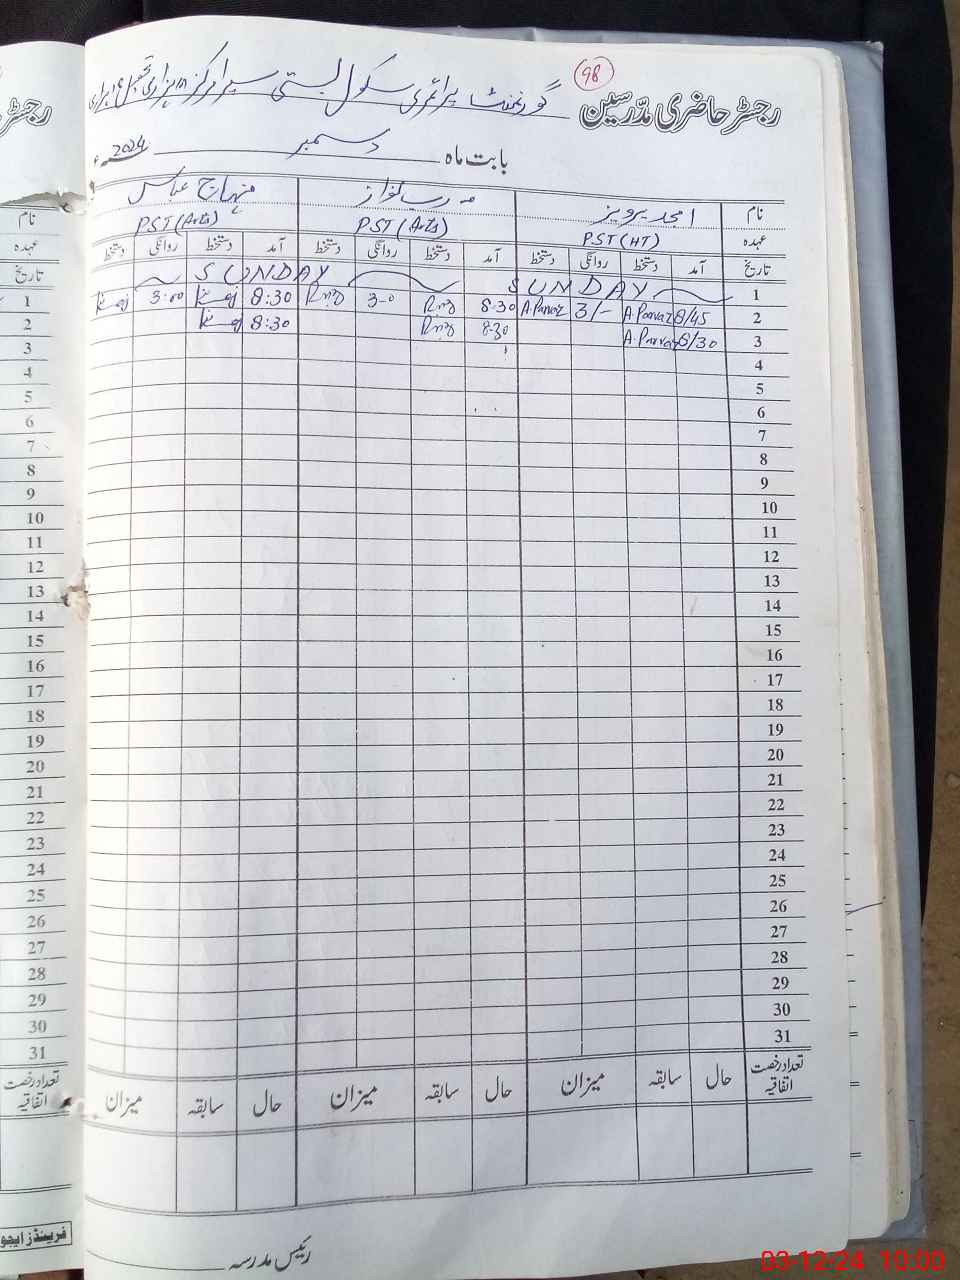 98
رجسٹر حاضری مدرسین گورنمنٹ پرائمری سکول بستی سیرا مرکز
بابت ماہ دسمبر 2024ء
نام امجد پرویز رب نواز منہاج عباس
عہدہ PST (HT) PST (Arts) PST (Arts)
تاریخ آمد دستخط روانگی دستخط آمد دستخط روانگی دستخط آمد دستخط روانگی دستخط
1 SUNDAY SUNDAY
2 8/45 A.Parvaz 3/- A.Parvaz 8-30 Rnz 3-0 Rnz 8:30 3:00
3 8/30 A.Parvaz 8-30 Rnz 8:30
4
5
6
7
8
9
10
11
12
13
14
15
16
17
18
19
20
21
22
23
24
25
26
27
28
29
30
31
تعداد رخصت اتفاقیہ حال سابقہ میزان حال سابقہ میزان حال سابقہ میزان
رئیس مدرسہ
رجسٹر
نام
عہدہ
تاریخ
1
2
3
4
5
6
7
8
9
10
11
12
13
14
15
16
17
18
19
20
21
22
23
24
25
26
27
28
29
30
31
تعداد رخصت
اتفاقیہ
فرینڈز ایجو
03-12-24 10:00